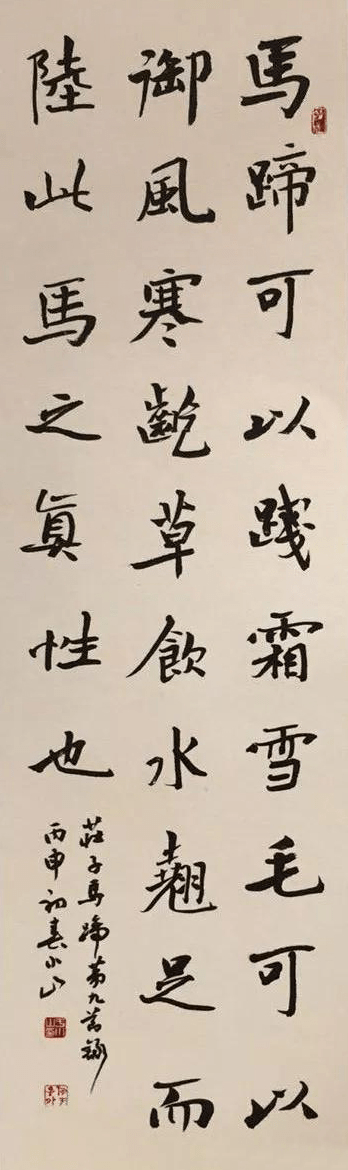 馬蹄可以踐霜雪毛可以
御風寒齕草飲水翹足而
陸此馬之真性也
莊子馬蹄第九節錄
丙申初春小山